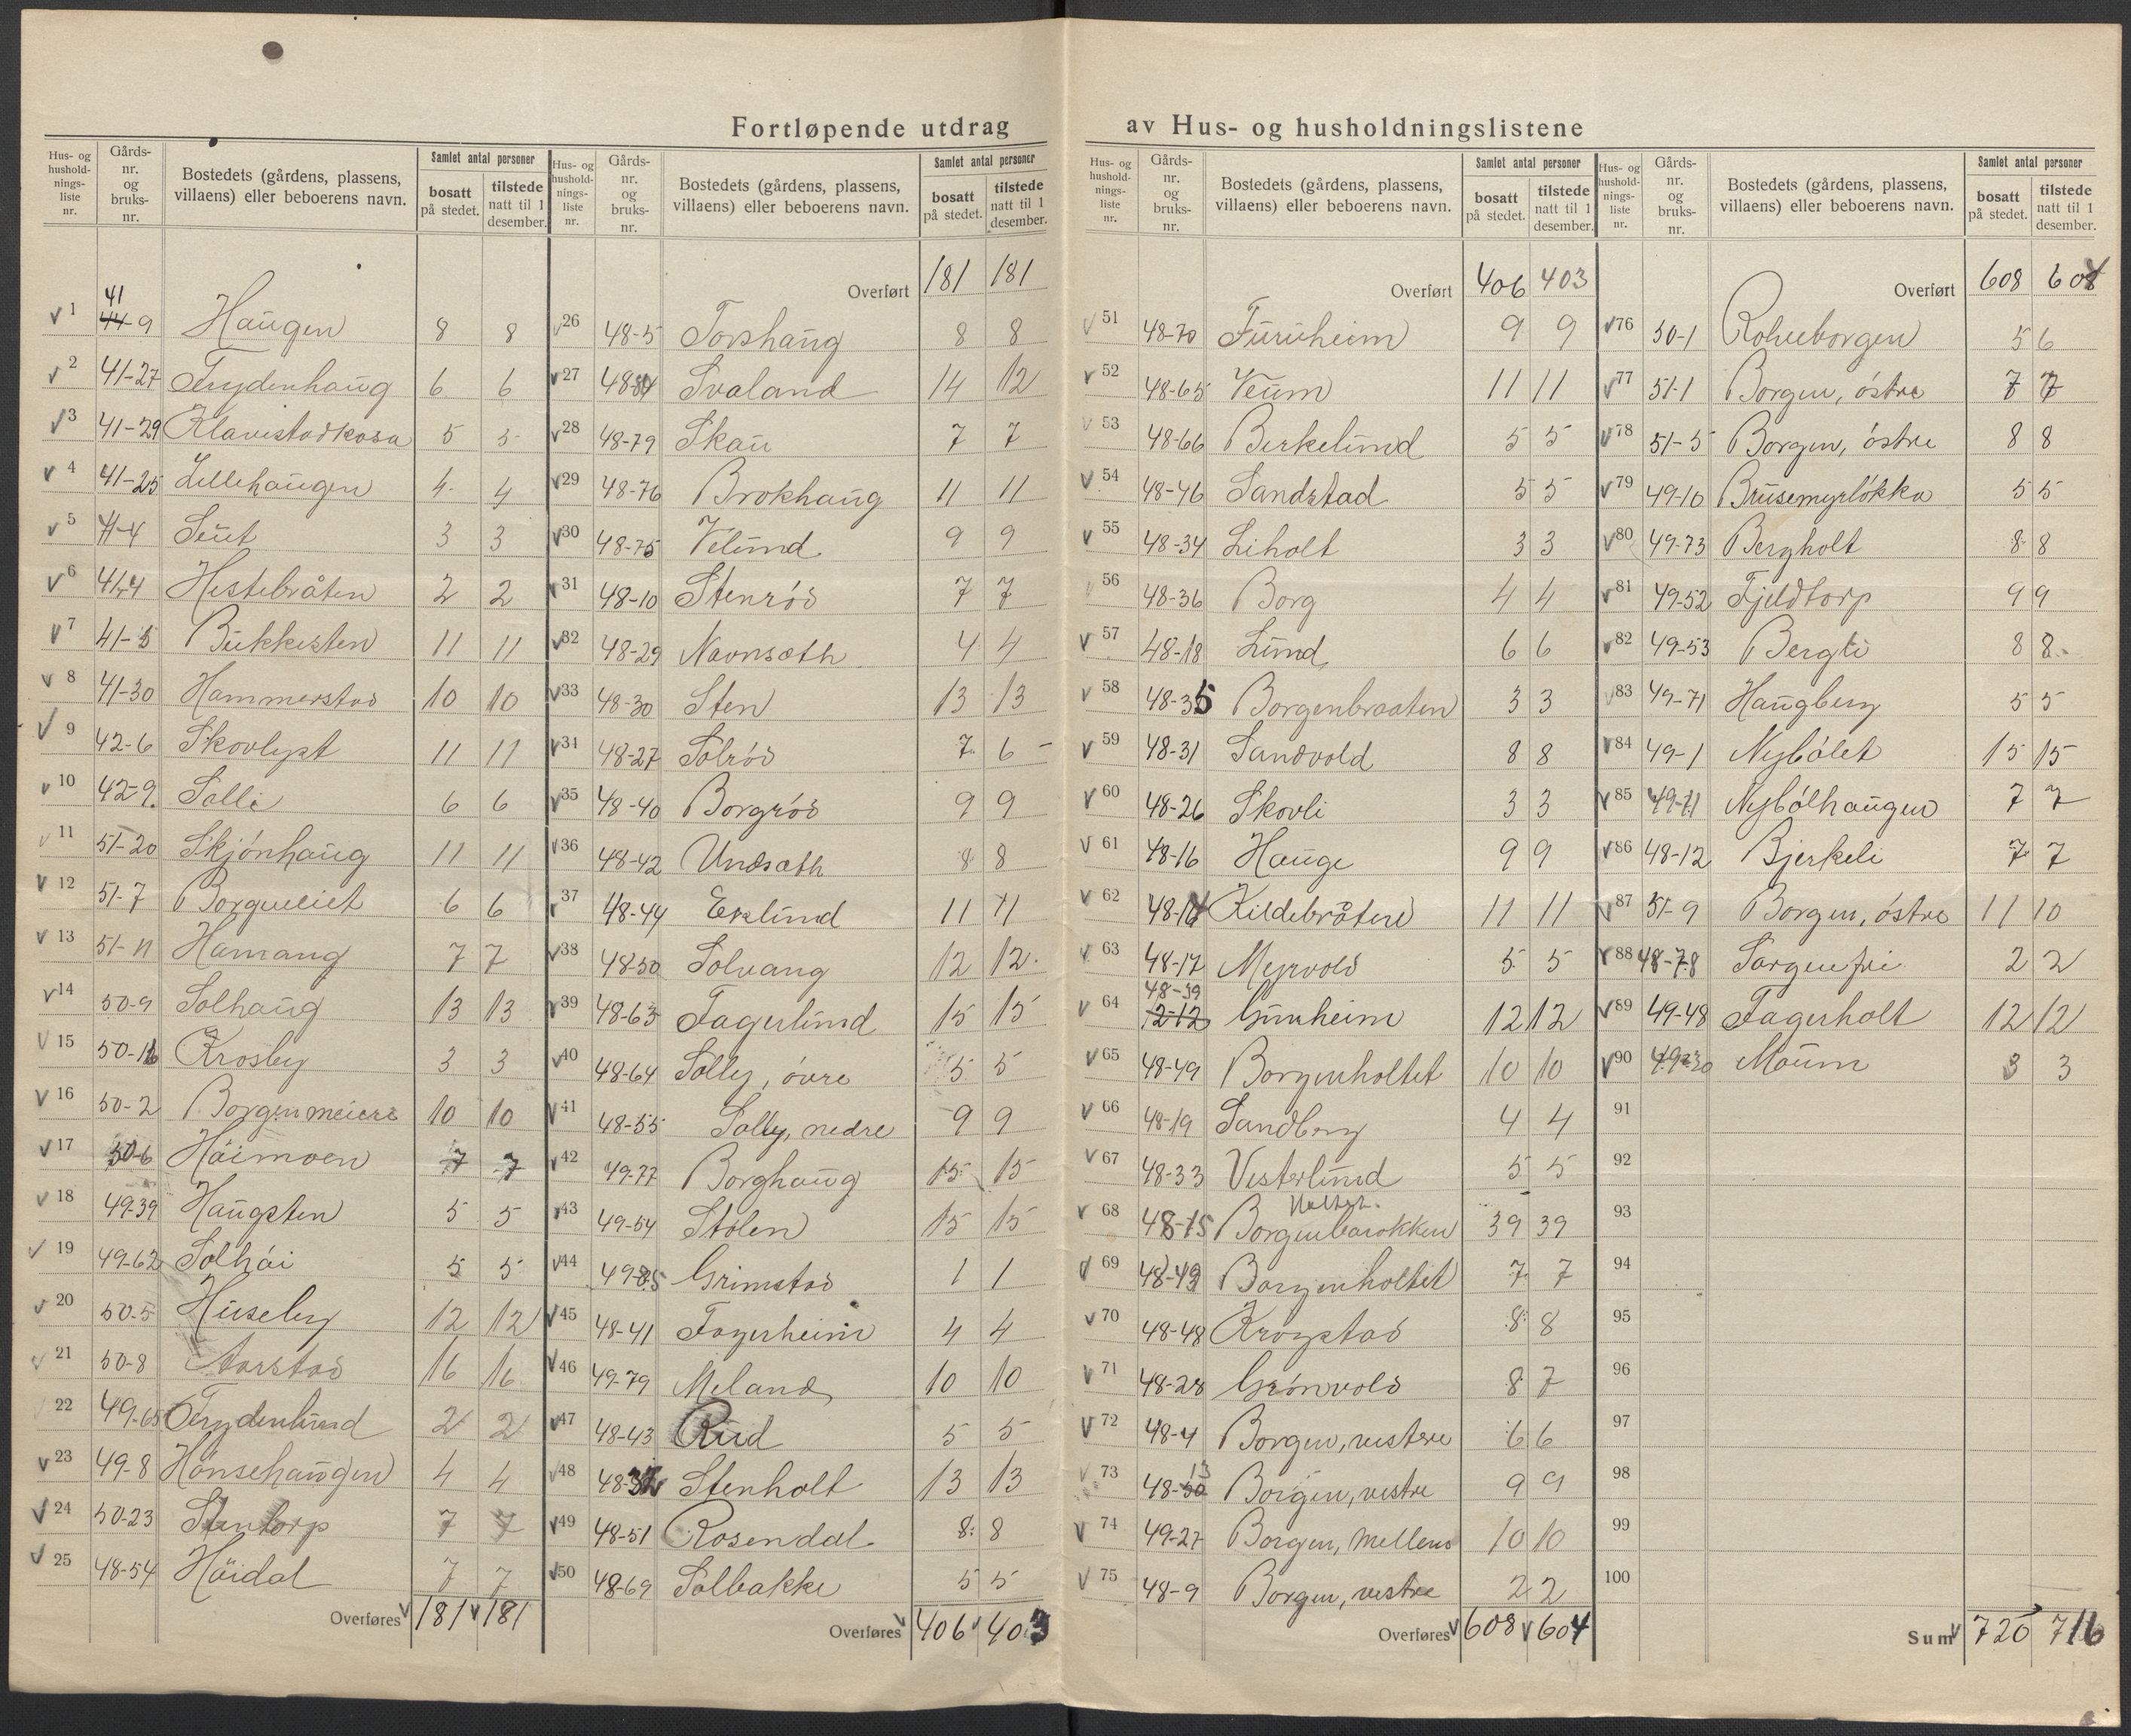 Fortløpende utdrag av Hus- og husholdningslistene
Hus- og husholdnings-liste nr. | Gårds-nr. og bruks-nr. | Bostedets (gårdens, plassens, villaens) eller beboerens navn. | Samlet antal personer | bosatt på stedet. | tilstede natt til 1 desember.
1 41-9 Haugen 8 8
2 41-27 Frydenhaug 6 6
3 41-29 Klavestadkosa 5 5
4 41-25 Lillehaugen 4 4
5 41-4 Seut 3 3
6 41-4 Hestebråten 2 2
7 41-5 Bukkesten 11 11
8 41-30 Hammerstad 10 10
9 42-6 Skovlyst 11 11
10 42-9 Solli 6 6
11 51-20 Skjönhaug 11 11
12 51-7 6 6
13 51-11 Hamang 7 7
14 50-9 Solhaug 13 13
15 Krosby 3 3
16 50-2 Borgenmeieri 10 10
17 50-6 Höimoen 7 7
18 49-39 Haugsten 5 5
19 49-62 Solhöi 5 5
20 50-5 Huseby 12 12
21 50-8 Aarstad 16 16
22 49-65 Frydenlund 2 2
23 49-8 Hönsehaugen 4 4
24 50-23 Stentorp 7 7
25 48-54 Höidal 7 7
Overføres 181 181
Hus- og husholdnings-liste nr. | Gårds-nr. og bruks-nr. | Bostedets (gårdens, plassens, villaens) eller beboerens navn. | Samlet antal personer | bosatt på stedet. | tilstede natt til 1 desember.
Overført 181 181
26 48-5 Torshaug 8 8
27 Svaland 14 12
28 48-79 Skau 7 7
29 48-76 Brokhaug 11 11
30 48-75 Velund 9 9
31 48-10 Stenröd 7 7
32 48-29 Navnsæth 4 4
33 48-30 Sten 13 13
34 48-27 Solröd 7 6 -
35 48-40 Borgröd 9 9
36 48-42 Undsæth 8 8
37 48-44 Eklund 11 11
38 48-50 Solvang 12 12
39 48-63 Fagerlund 15 15
40 48-64 Solly, övre 5 5
41 48-55 Solly, nedre 9 9
42 49-77 Borghaug 15 15
43 49-54 Stölen 15 15
44 49-85 Grimstad 1 1
45 48-41 Fagerheim 4 4
46 49-79 Meland 10 10
47 48-43 Rud 5 5
48 48-32 Stenholt 13 13
49 48-51 Rosendal 8 8
50 48-69 Solbakke 5 5
Overføres 406 403
Hus- og husholdnings-liste nr. | Gårds-nr. og bruks-nr. | Bostedets (gårdens, plassens, villaens) eller beboerens navn. | Samlet antal personer | bosatt på stedet. | tilstede natt til 1 desember.
Overført 406 403
51 48-70 Furuheim 9 9
52 48-65 Veum 11 11
53 48-66 Birkelund 5 5
54 48-46 Sandstad 5 5
55 48-34 Liholt 3 3
56 48-36 Borg 4 4
57 48-18 Lund 6 6
58 48-35 Borgenbraaten 3 3
59 48-31 Sandvold 8 8
60 48-26 Skovli 3 3
61 48-16 Hauge 9 9
62 48-14 Kildebråten 11 11
63 48-17 Myrvold 5 5
64 48-39 Gunheim 12 12
65 48-49 Borgenholtet 10 10
66 48-19 Sandberg 4 4
67 48-33 Vesterlund 5 5
68 48-15 Borgenbarokken 39 39
69 48-49 Borgenholtet 7 7
70 48-48 Krogstad 8 8
71 48-28 Grönvold 8 7
72 48-4 Borgen, vestre 6 6
73 48-13 Borgen, vestre 9 9
74 49-27 Borgen, mellem 10 10
75 48-9 Borgen, vestre 2 2
Overføres 608 604
Hus- og husholdnings-liste nr. | Gårds-nr. og bruks-nr. | Bostedets (gårdens, plassens, villaens) eller beboerens navn. | Samlet antal personer | bosatt på stedet. | tilstede natt til 1 desember.
Overført 608 604
76 50-1 Rolveborgen 5 6
77 51-1 Borgen, östre 7 7
78 51-5 Borgen, östre 8 8
79 49-10 Brusemyrlökka 5 5
80 49-73 Bergholt 8 8
81 49-52 Fjeldtorp 9 9
82 49-53 Bergli 8 8
83 49-71 Haugberg 5 5
84 49-1 Nybölet 15 15
85 49-11 Nybölhaugen 7 7
86 48-12 Bjerkeli 7 7
87 51-9 Borgen, östre 11 10
88 48-78 Sorgenfri 2 2
89 49-48 Fagerholt 12 12
90 Moum 3 3
91
92
93
94
95
96
97
98
99
100
Sum 720 716